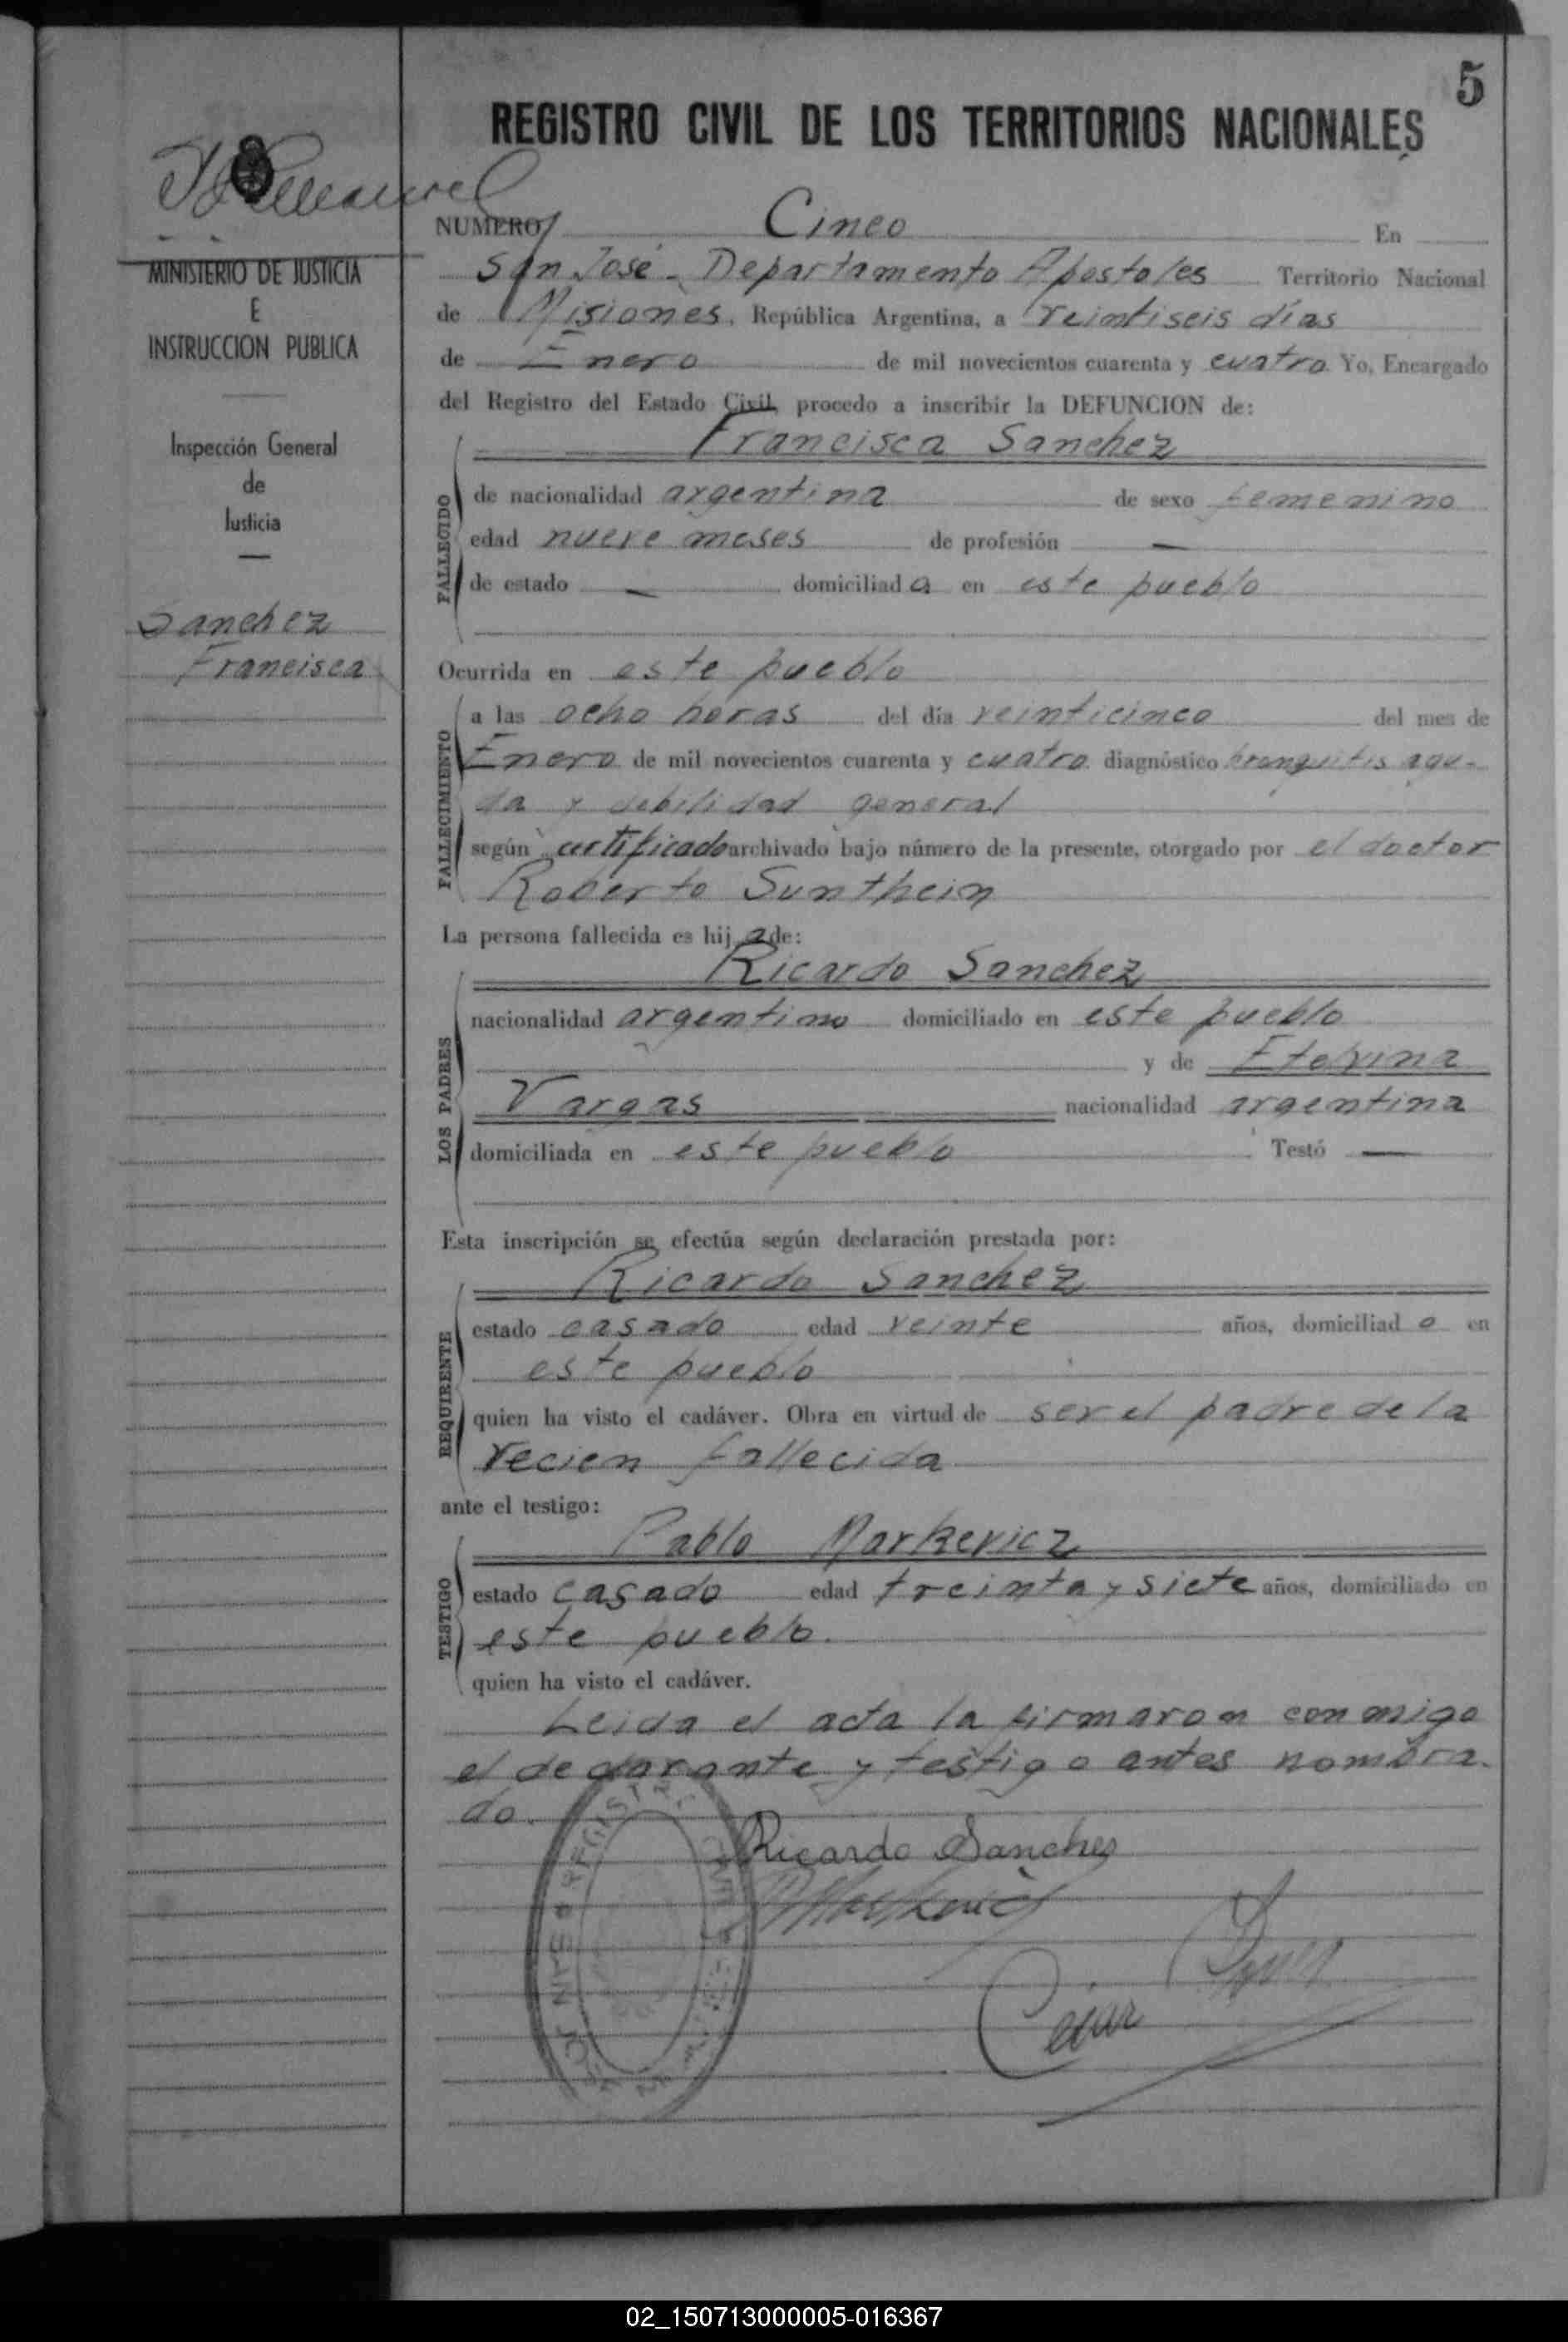 5
REGISTRO CIVIL DE LOS TERRITORIOS NACIONALES
MINISTERIO DE JUSTICIA
E
INSTRUCCION PUBLICA
Inspección General
de
Justicia
Sanchez
Francisca
NUMERO Cinco En
San José - Departamento Apostoles Territorio Nacional
de Misiones, República Argentina, a veintiseis días
de Enero de mil novecientos cuarenta y cuatro Yo, Encargado
del Registro del Estado Civil, procedo a inscribir la DEFUNCION de:
Francisca Sanchez
FALLECIDO
de nacionalidad argentina de sexo femenino
edad nueve meses de profesión —
de estado — domiciliada en este pueblo
Ocurrida en este pueblo
FALLECIMIENTO
a las ocho horas del día veinticinco del mes de
Enero de mil novecientos cuarenta y cuatro diagnóstico bronquitis agu-
da y debilidad general
según certificado archivado bajo número de la presente, otorgado por el doctor
Roberto Sunthein
La persona fallecida es hija de:
Ricardo Sanchez
LOS PADRES
nacionalidad argentino domiciliado en este pueblo
y de Etelvina
Vargas nacionalidad argentina
domiciliada en este pueblo Testó —
Esta inscripción se efectúa según declaración prestada por:
Ricardo Sanchez
REQUIRENTE
estado casado edad veinte años, domiciliado en
este pueblo
quien ha visto el cadáver. Obra en virtud de ser el padre de la
recien fallecida
ante el testigo:
Pablo Markevicz
TESTIGO
estado casado edad treinta y siete años, domiciliado en
este pueblo.
quien ha visto el cadáver.
Leida el acta la firmaron conmigo
el declarante y testigo antes nombra-
do.
Ricardo Sanchez
REGISTRO
SAN JOSE
Cesar
02_150713000005-016367